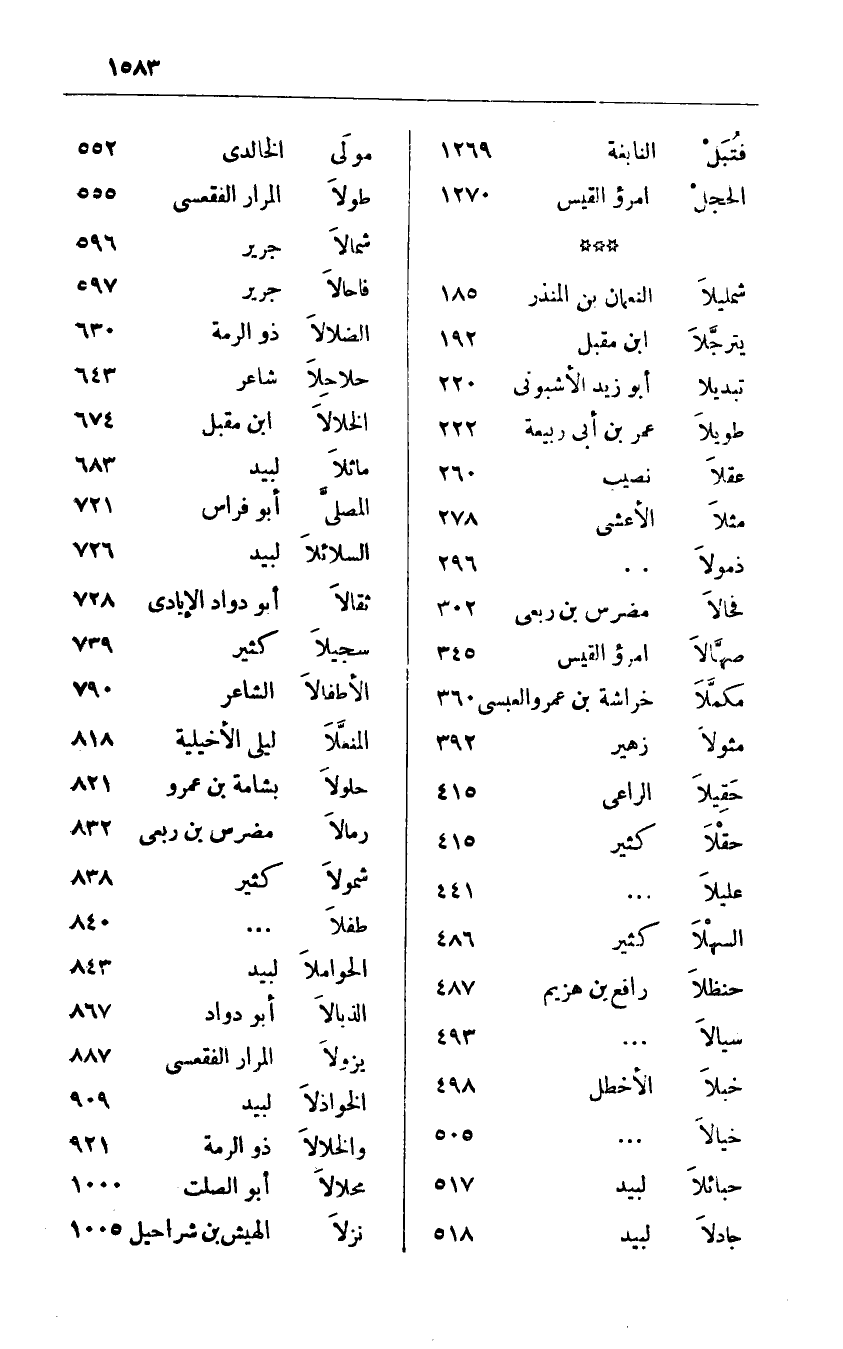 ١٥٨٣
فتُبَلْ النابغة ١٢٦٩
الحجلْ امرؤ القيس ١٢٧٠
***
شمليلاَ النعمان بن المنذر ١٨٥
يترجَّلاَ ابن مقبل ١٩٢
تبديلا أبو زيد الأشبونى ٢٢٠
طويلاَ عمر بن أبى ربيعة ٢٢٢
عقلاَ نصيب ٢٦٠
مثلاَ الأعشى ٢٧٨
ذمولاَ . . ٢٩٦
فحالاَ مضرس بن ربعى ٣٠٢
صهَّالاَ امرؤ القيس ٣٤٥
مكمَّلاَ خراشة بن عمرو العبسى ٣٦٠
مثولاَ زهير ٣٩٢
حَقِيلاَ الراعى ٤١٥
حقْلاَ كثير ٤١٥
عليلاَ ... ٤٤١
السهْلاَ كثير ٤٨٦
حنظلاَ رافع بن هزيم ٤٨٧
سيالاَ ... ٤٩٣
خبلاَ الأخطل ٤٩٨
خيالاَ ... ٥٠٥
حبائلاَ لبيد ٥١٧
جادلاَ لبيد ٥١٨
مولَى الخالدى ٥٥٢
طولاَ المرار الفقعسى ٥٥٥
شمالاَ جرير ٥٩٦
فاحالاَ جرير ٥٩٧
الضلالاَ ذو الرمة ٦٣٠
حلاحِلاَ شاعر ٦٤٣
الخلالاَ ابن مقبل ٦٧٤
ماثلاَ لبيد ٦٨٣
المصلىَّ أبو فراس ٧٢١
السلائلاَ لبيد ٧٢٦
ثقالاَ أبو دواد الإيادى ٧٢٨
سجيلاَ كثير ٧٣٩
الأطفالاَ الشاعر ٧٩٠
المنعَّلاَ ليلى الأخيلية ٨١٨
حلولاَ بشامة بن عمرو ٨٢١
رمالاَ مضرس بن ربعى ٨٣٢
شمولاَ كثير ٨٣٨
طفلاَ ... ٨٤٠
الحواملاَ لبيد ٨٤٣
الذبالاَ أبو دواد ٨٦٧
يزولاَ المرار الفقعسى ٨٨٧
الخواذلاَ لبيد ٩٠٩
والخلالاَ ذو الرمة ٩٢١
محلالاَ أبو الصلت ١٠٠٠
نزلاَ الهيش بن شراحيل ١٠٠٥